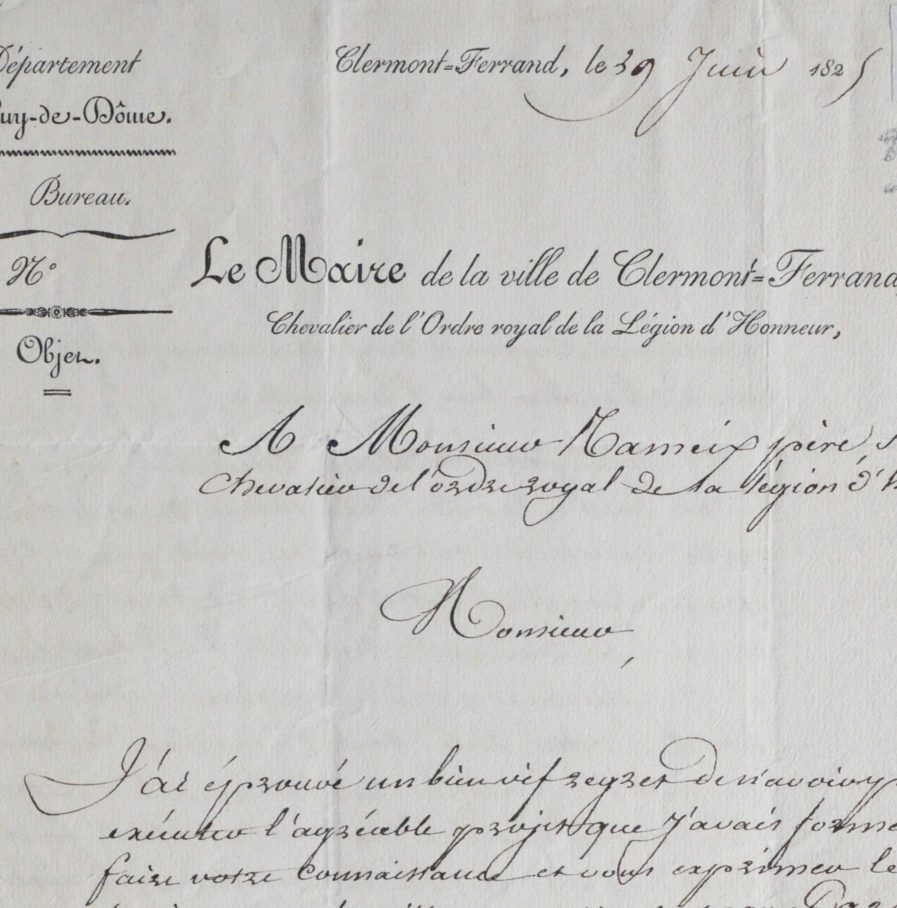 Département
Puy-de-Dôme.
Bureau.
N°
Objet.
Clermont-Ferrand, le 29 Juin 1825
Le Maire de la ville de Clermont-Ferrand,
Chevalier de l'Ordre royal de la Légion d'Honneur,
A Monsieur père,
Chevalier de l'ordre royal de la légion d'h
Monsieur,
J'ai éprouvé un bien vif regret de n'avoir p
exécuter l'agréable projet que j'avais formé
faire votre connaissance et vous exprimer le